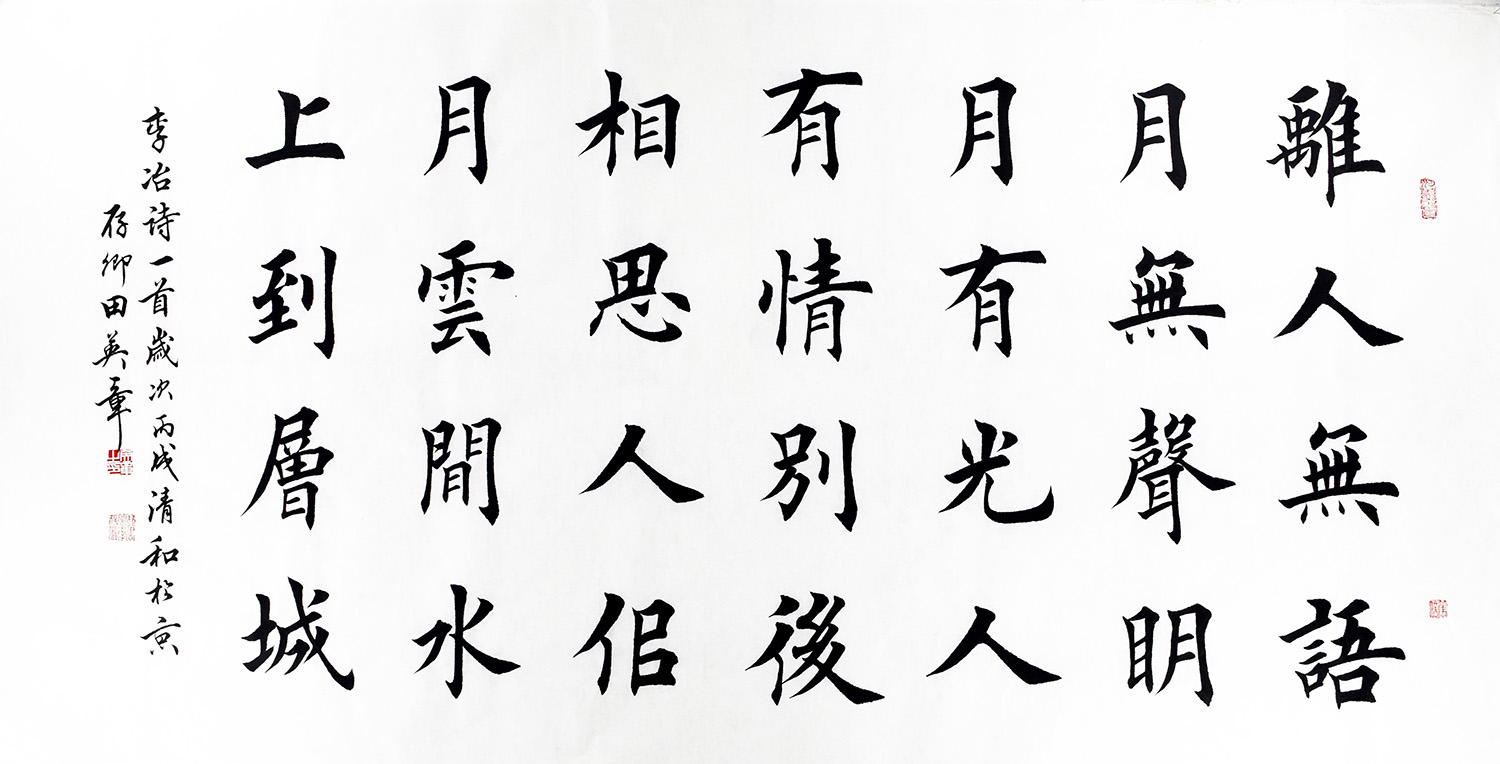 離人無語
月無聲明
月有光人
有情別後
相思人佀
月雲間水
上到層城
李冶詩一首歲次丙戌清和於京
存卿田英章